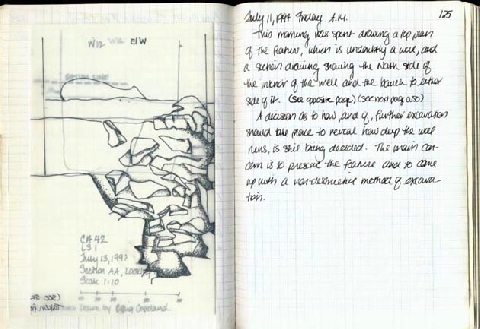 W12 W12 E1W
CA 42
L51
July 13, 1997
Section AA,
Scale 1:10
drawn by Copeland
July 11, 1997 Friday A.M. 125
This morning was spent drawing a top plan
of the feature, which is undoubtedly a well, and
a section drawing showing the North side of
the interior of the well and the bauk to either
side of it. (see opposite page) (see next pag also)
A decision as to how, and if, further excavation
should take place to reveal how deep the well
runs, is still being debated. The main con-
cern is to preserve the feature and to come
up with a non-destructive method of excava-
tion.